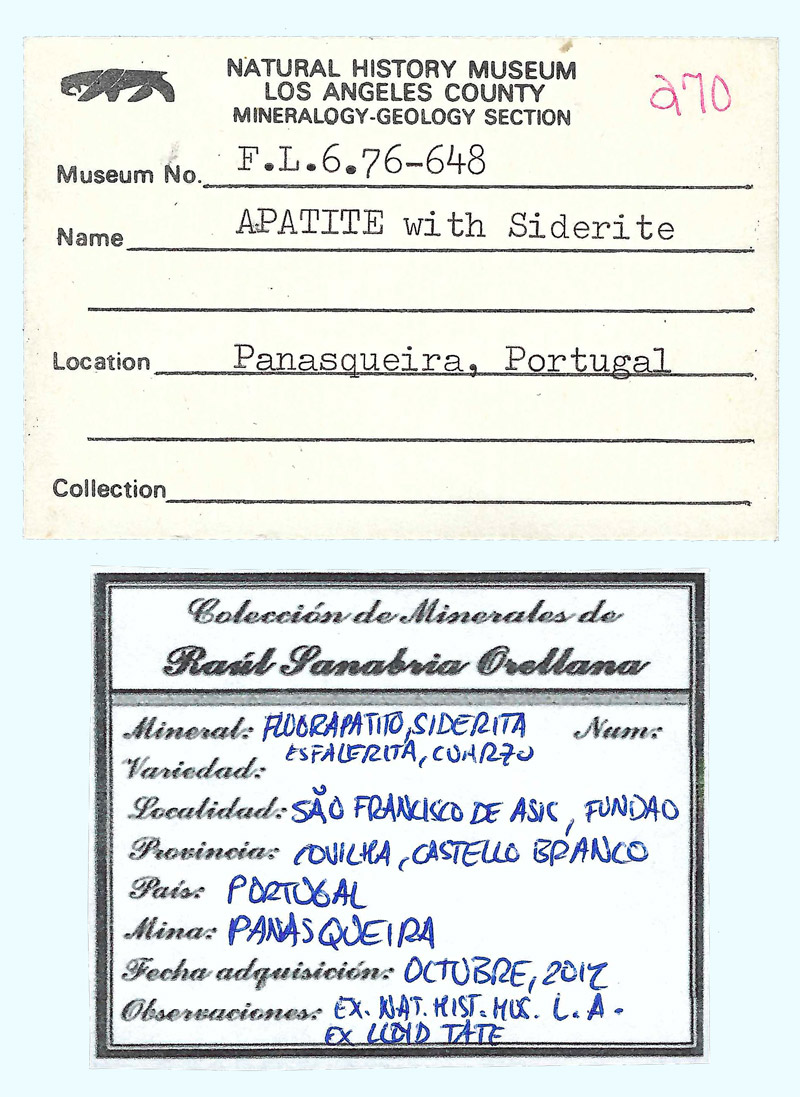 NATURAL HISTORY MUSEUM
LOS ANGELES COUNTY
MINERALOGY-GEOLOGY SECTION
270
Museum No. F.L.6.76-648
Name APATITE with Siderite
Location Panasqueira, Portugal
Collection
Colección de Minerales de
Raúl Sanabria Orellana
Mineral: FLUORAPATITO, SIDERITA Num:
ESFALERITA, CUARZO
Variedad:
Localidad: SÃO FRANCISCO DE ASIS, FUNDAO
Provincia: COVILHA, CASTELLO BRANCO
País: PORTUGAL
Mina: PANASQUEIRA
Fecha adquisición: OCTUBRE,
Observaciones: EX. NAT. HIST. MUS. L.A.
EX TATE